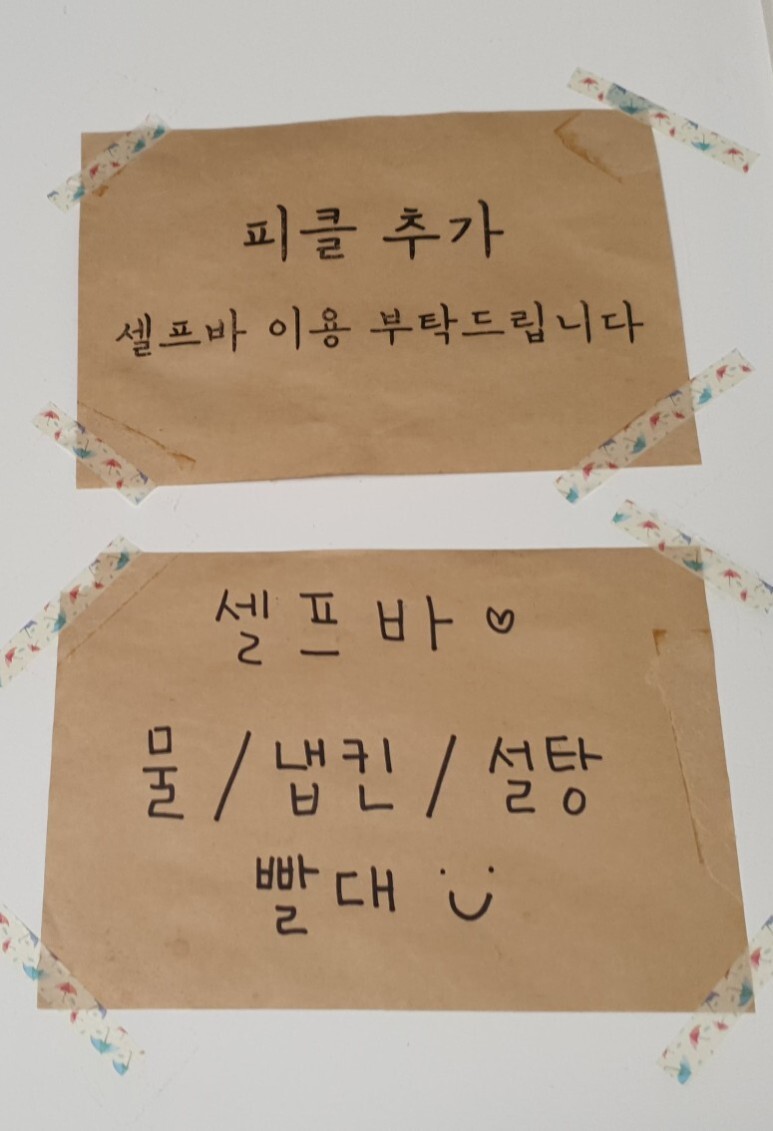 피클 추가
셀프바 이용 부탁드립니다
셀프바 ♡
물/냅킨/설탕
빨대 :)